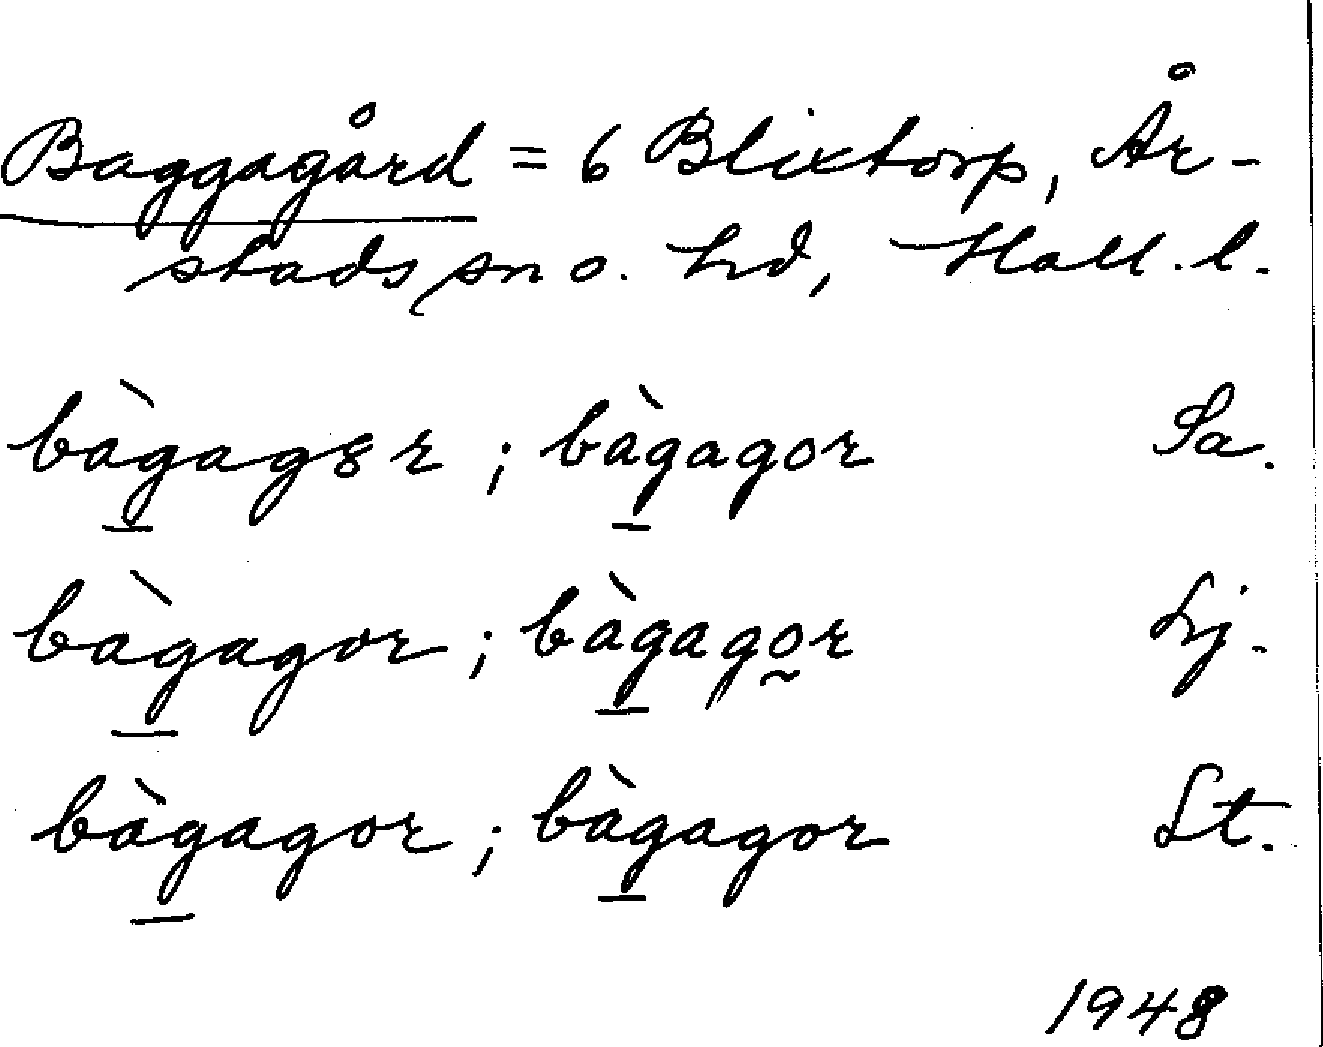 Baggagård = 6 Blixtorp, År-
stads sn o. hd, Hall. l.
bàgagȣr ; bàgagor Sa.
bàgagor ; bàgago̰r Lj.
bàgagor ; bàgagor St.
1948